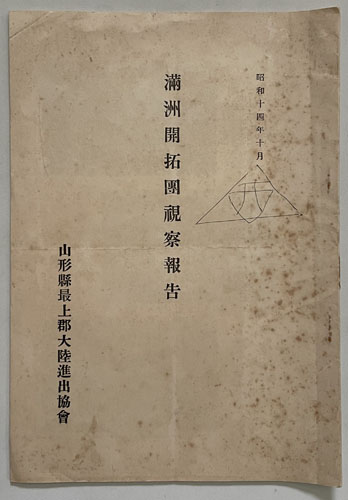 昭和十四年十月
滿洲開拓團視察報告
山形縣最上郡大陸進出協會